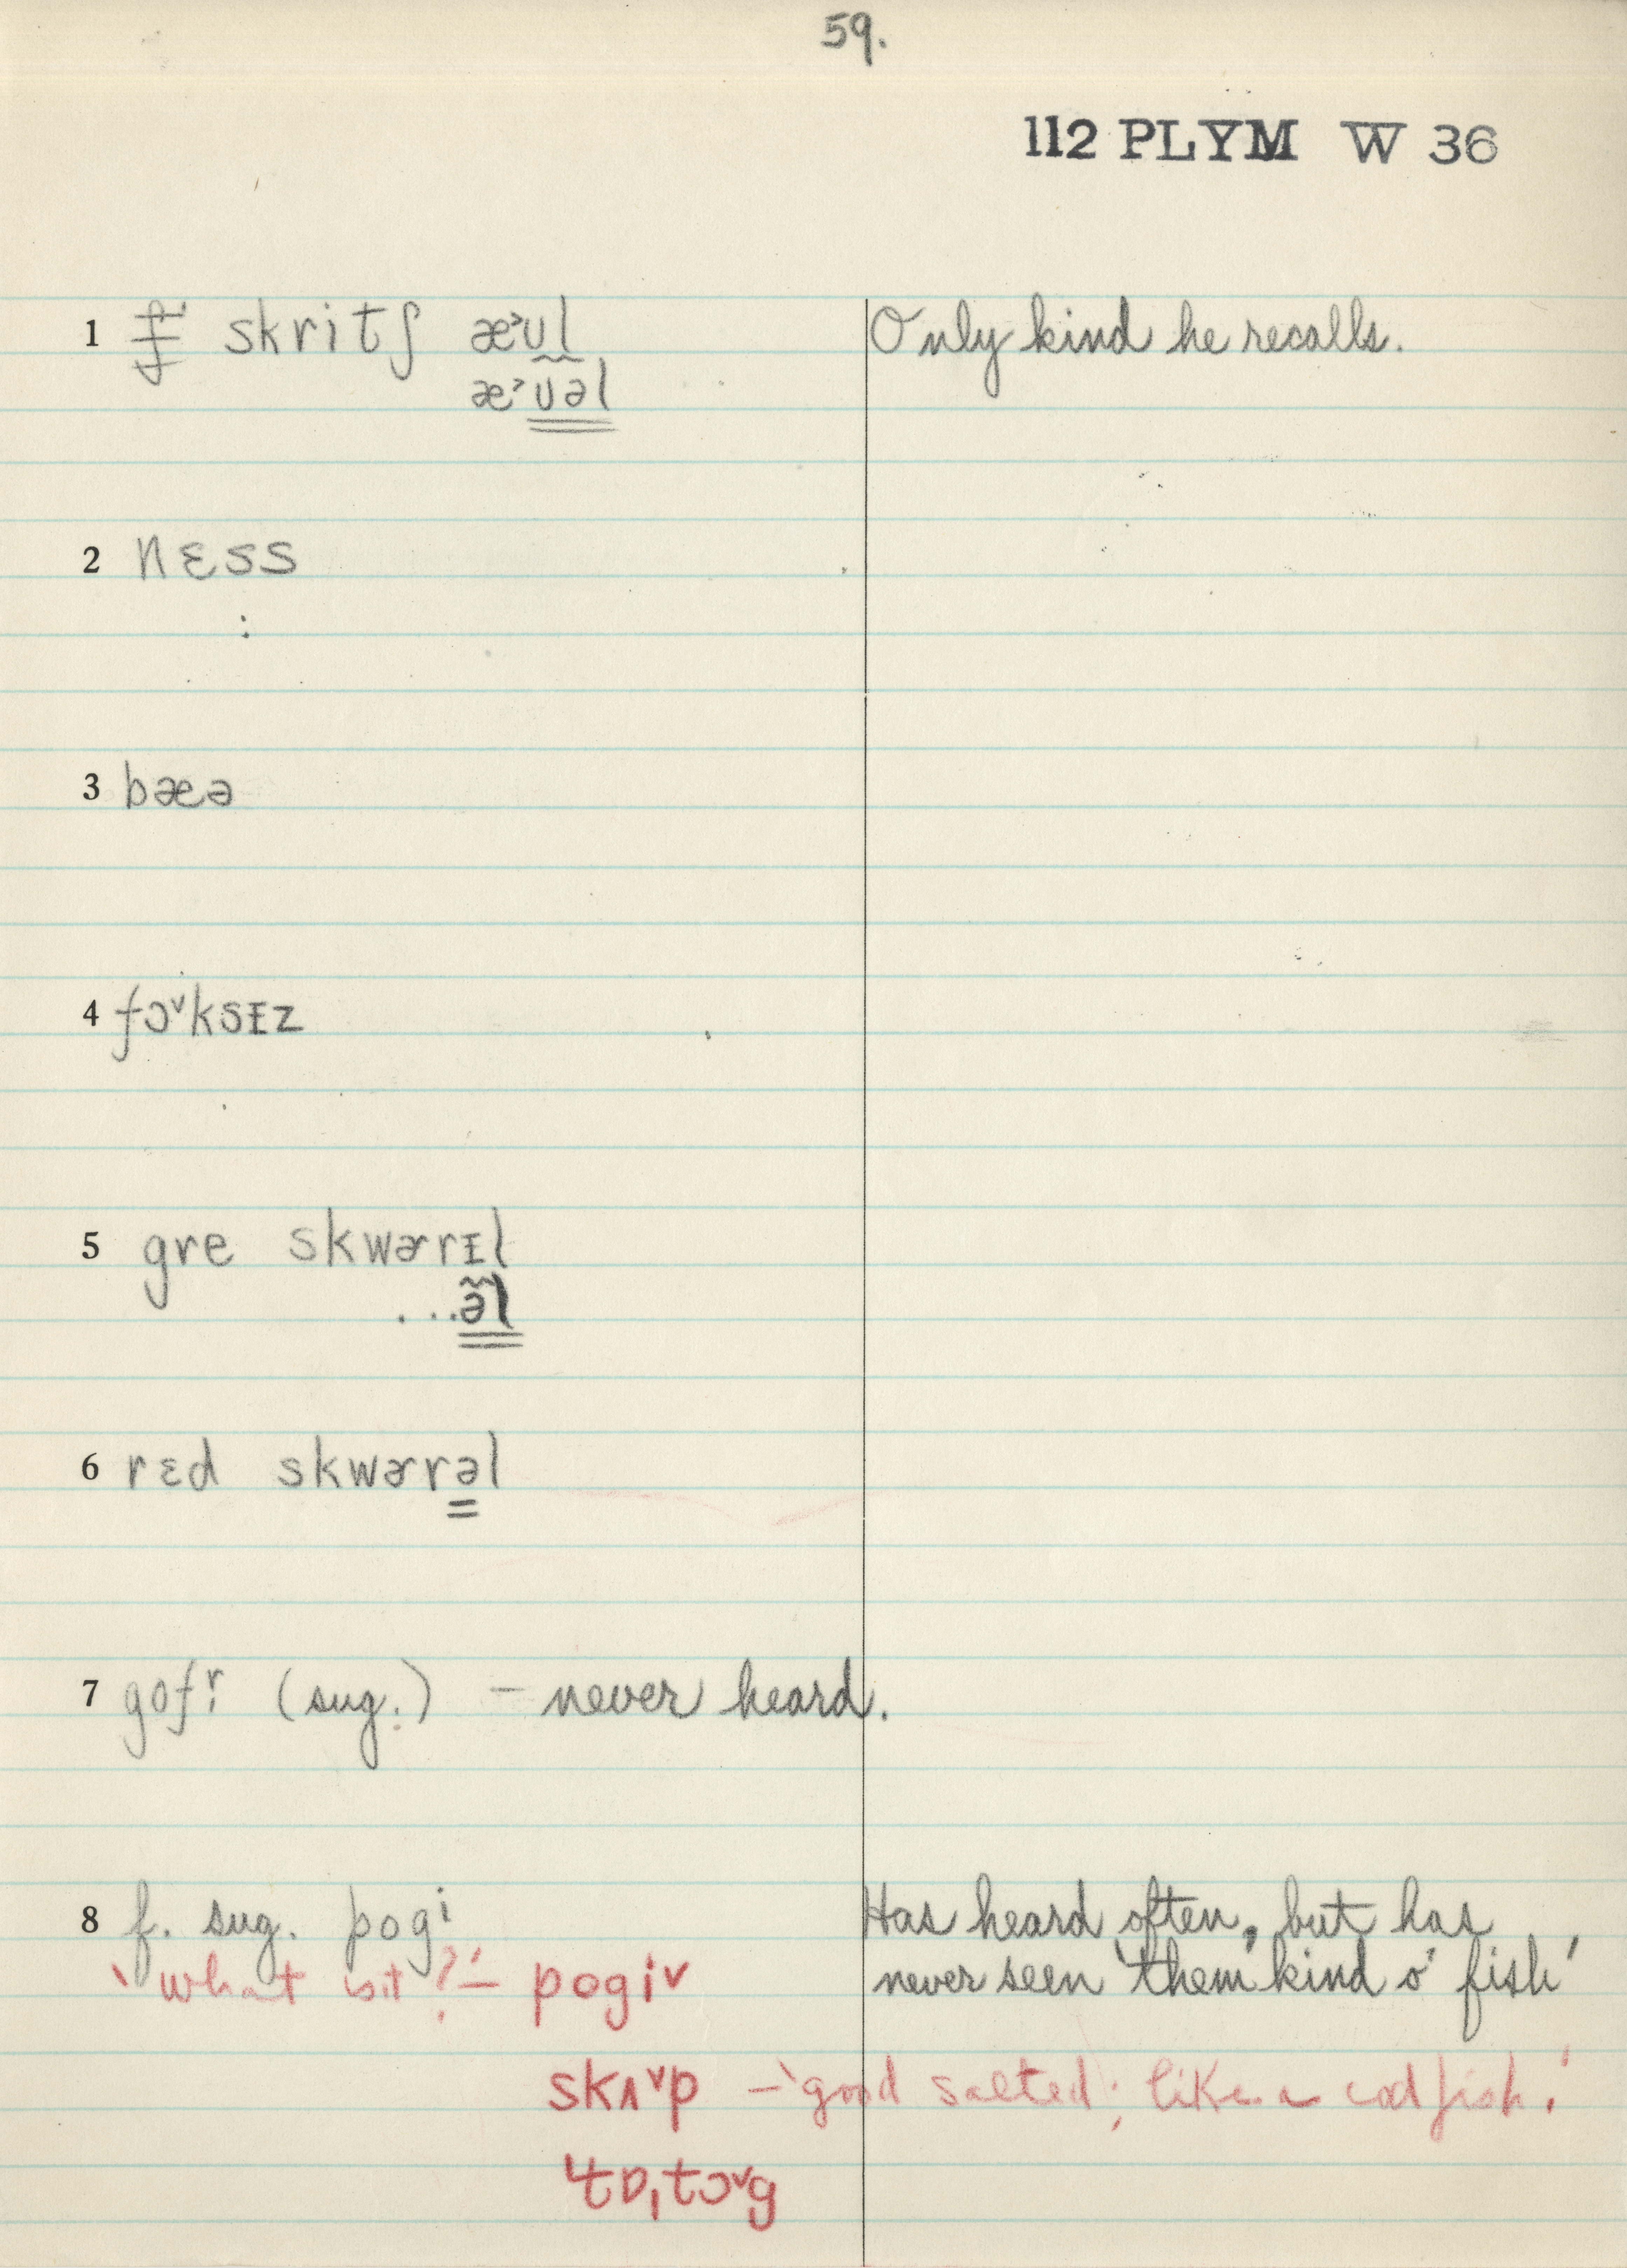 59.
112 PLYM W 36
1 skritʃ æ˃ʊl Only kind he recalls.
æ˃ʊəl
2 nɛss
3 bæə
4 fɔ˅ksɪz
5 gre skwɚrɪl
...əl
6 rɛd skwɚrəl
7 (sug.) – never heard.
8 f. sug. pogi Has heard often, but has
'what is it?' – pogi˅ never seen 'them kind o' fish'
skʌ˅p – 'good salted; like a codfish.'
ˈtɒˌtɔ˅g